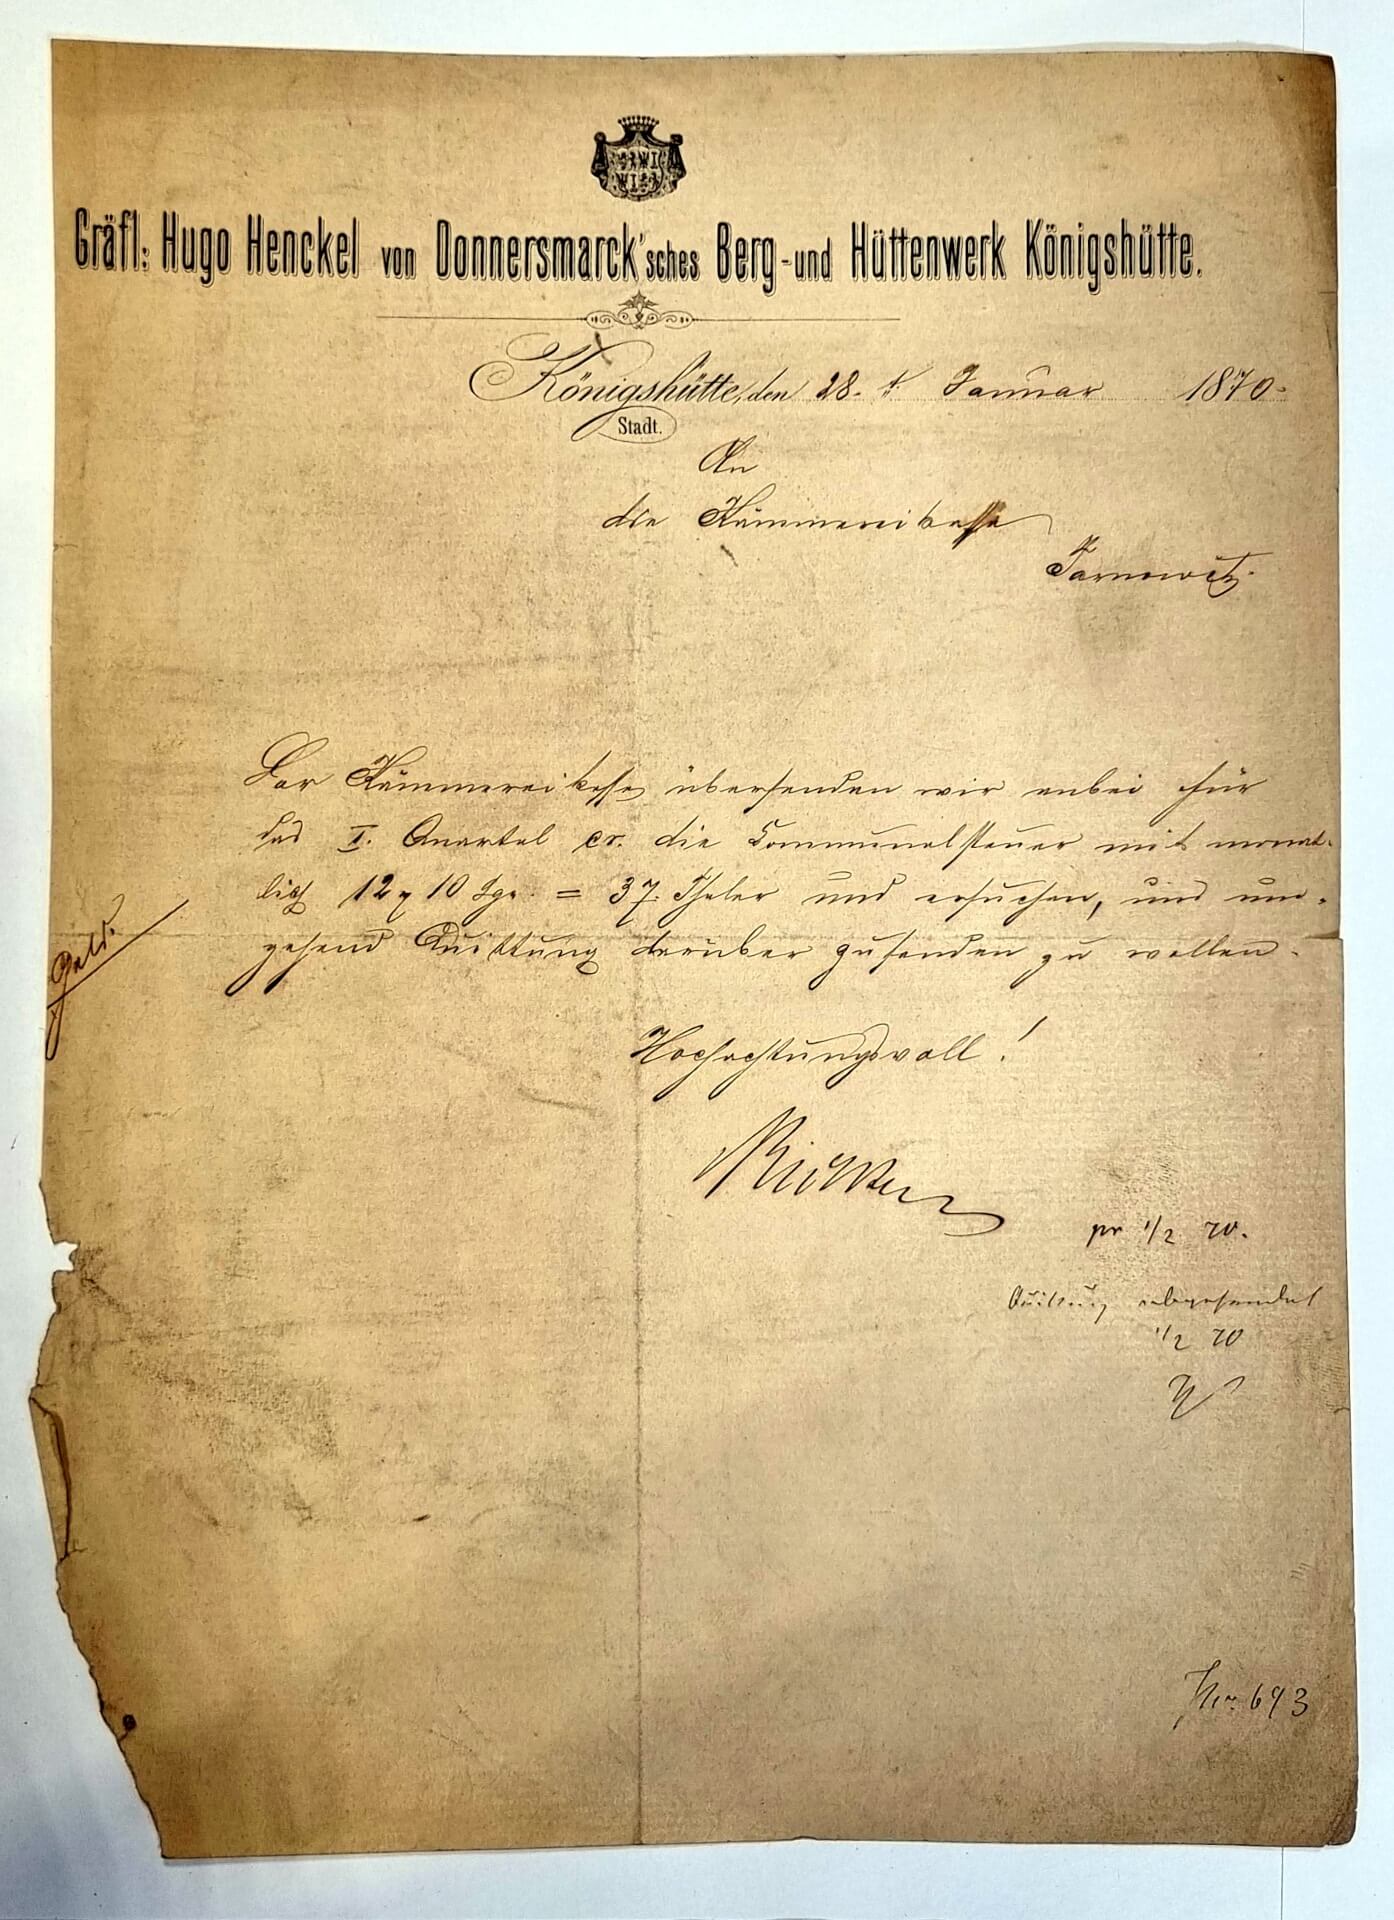 Gräfl: Hugo Henckel von Donnersmarck'sches Berg- und Hüttenwerk Königshütte.
Königshütte, den 28. t. Januar 1870.
Stadt.
An
die Kämmereikasse
Tarnowitz.
Der Kämmereikasse übersenden wir anbei für
das I. Quartal cr. die Communalsteuer mit monat-
lich 12 10 Sgr. = 37 Thaler und ersuchen, uns um-
gehend Quittung darüber zusenden zu wollen.
Geld.
Hochachtungsvoll!
Richter
pr 1/2 70.
Quittung abgesendet
1/2 70
693